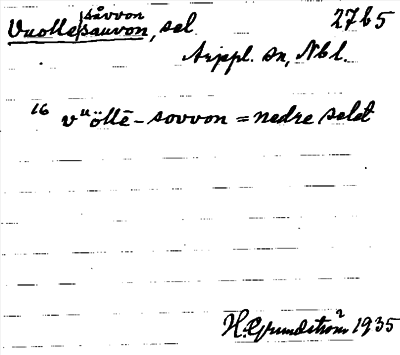 såvvon 2765
Vuolle/sauvon, sel
Arjepl. sn, Nbl.
16 vᵘöllē-sovvon = nedre selet
H. Grundström² 1935